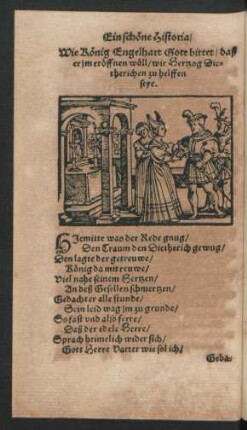 Ein schöne Historia/
Wie König Engelhart Gott bittet/ daß
er jm eröffnen wöll/ wie Hertzog Die-
therichen zu helffen
seye.
HIemitte was der Rede gnug/
Den Traum den Dietherich gewug/
Den sagte der getreuwe/
König da mit reuwe/
Viel nahe seinem Hertzen/
An deß Gesellen schmertzen/
Gedacht er alle stunde/
Sein leid wag jm zu grunde/
So fast vnd also serre/
Daß der edele Herre/
Sprach heimelich wider sich/
Gott Herre Vatter wie sol ich/
Geba-